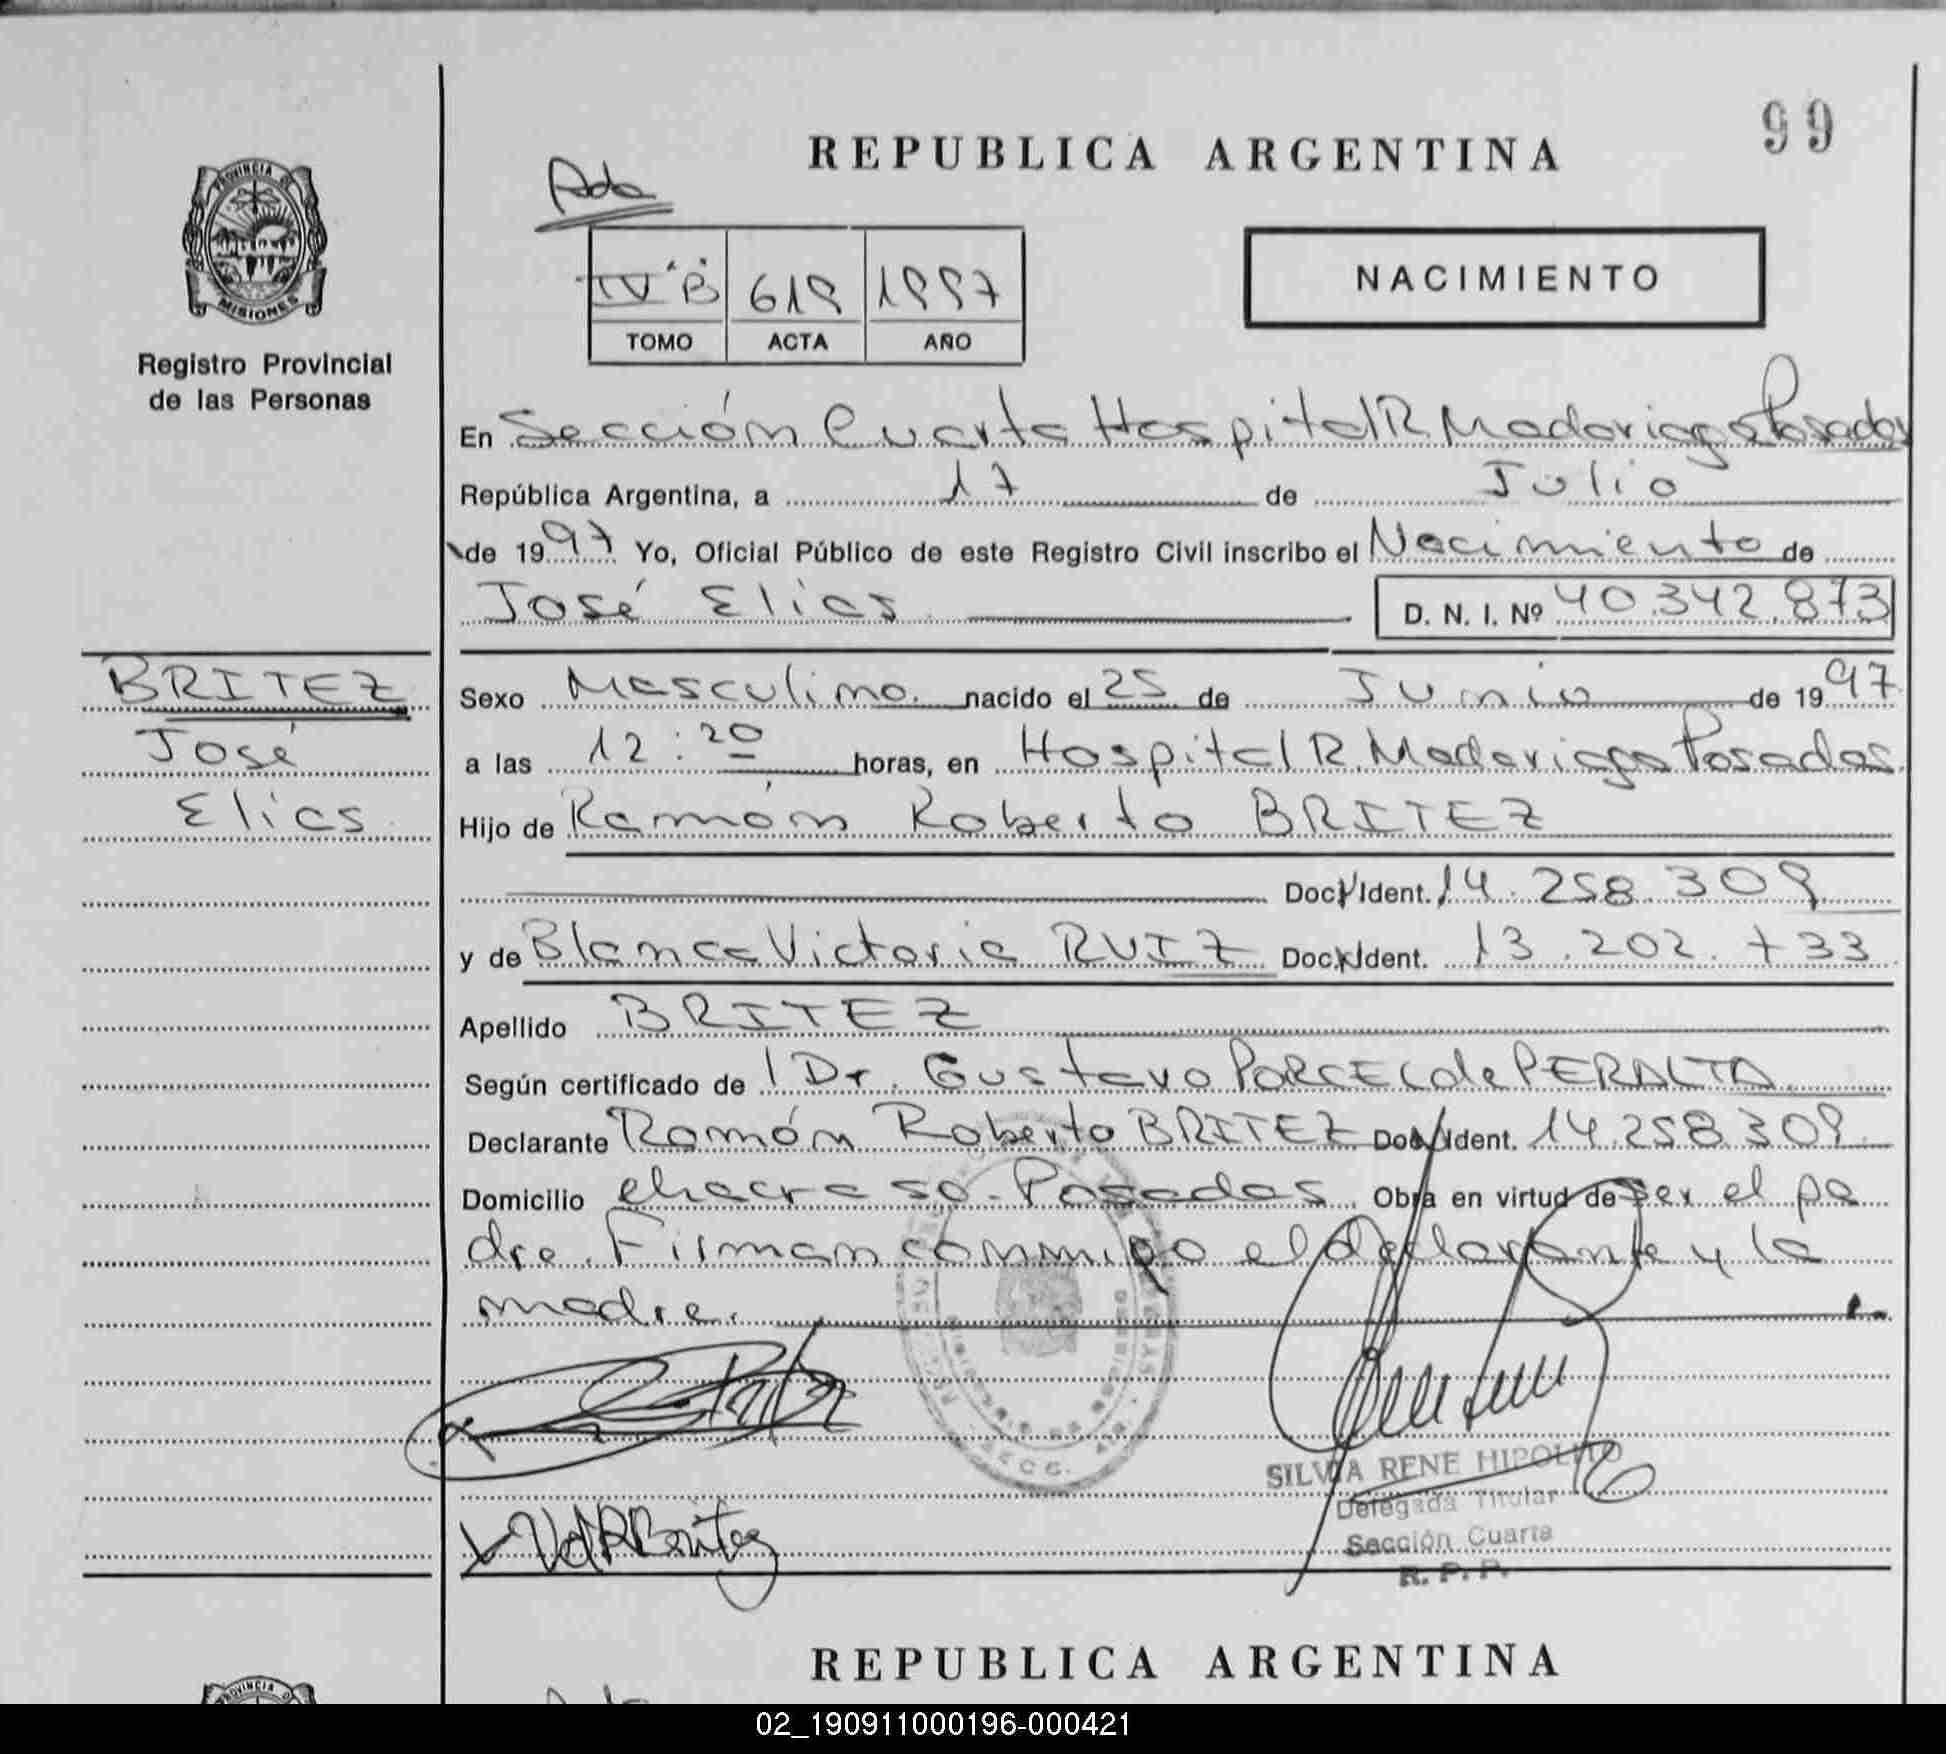 99
REPUBLICA ARGENTINA
PROVINCIA DE
MISIONES
Registro Provincial
de las Personas
Ada
IV "B" 619 1997
TOMO ACTA AÑO
NACIMIENTO
En Sección Cuarta Hospital R. Madariaga Posadas
República Argentina, a 17 de Julio
de 1997 Yo, Oficial Público de este Registro Civil inscribo el Nacimiento de
José Elias D. N. I. Nº 40.342.873
BRITEZ
José
Elias
Sexo Masculino nacido el 25 de Junio de 1997
a las 12:20 horas, en Hospital R. Madariaga Posadas
Hijo de Ramón Roberto BRITEZ
Doc. Ident. 14.258.309
y de Blanca Victoria RUIZ Doc. Ident. 13.202.733
Apellido BRITEZ
Según certificado de Dr. Gustavo PORCEL de PERALTA
Declarante Ramón Roberto BRITEZ Doc. Ident. 14.258.309
Domicilio chacra 50 - Posadas. Obra en virtud de ser el pa
dre. Firman conmigo el declarante y la
madre.
SILVIA RENE HIPOLITO
Delegada Titular
Sección Cuarta
R. P. P.
V d R Britez
REPUBLICA ARGENTINA
PROVINCIA DE
02_190911000196-000421